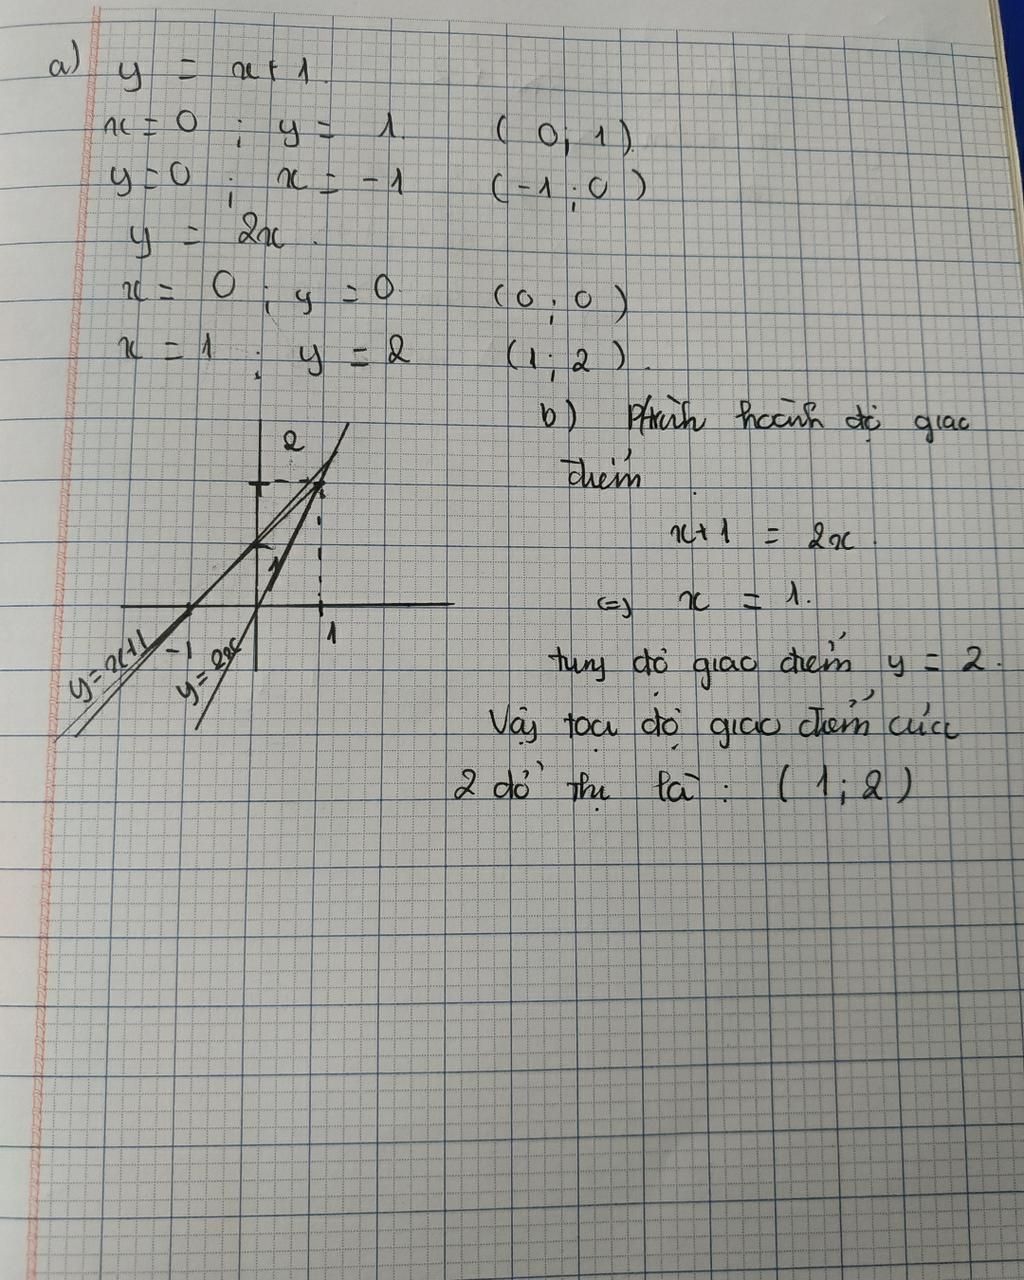 a) y = x + 1.
x = 0 ; y = 1. ( 0; 1 ).
y = 0 ; x = -1 ( -1 ; 0 )
y = 2x.
x = 0 ; y = 0 ( 0 ; 0 )
x = 1 ; y = 2 ( 1 ; 2 ).
2
1
1
-1
y = x+1
y = 2x
b) hoành độ giao
điểm
x+1 = 2x
<=> x = 1.
tung độ giao điểm y = 2.
Vậy tọa độ giao điểm của
2 đồ thị là : ( 1 ; 2 )